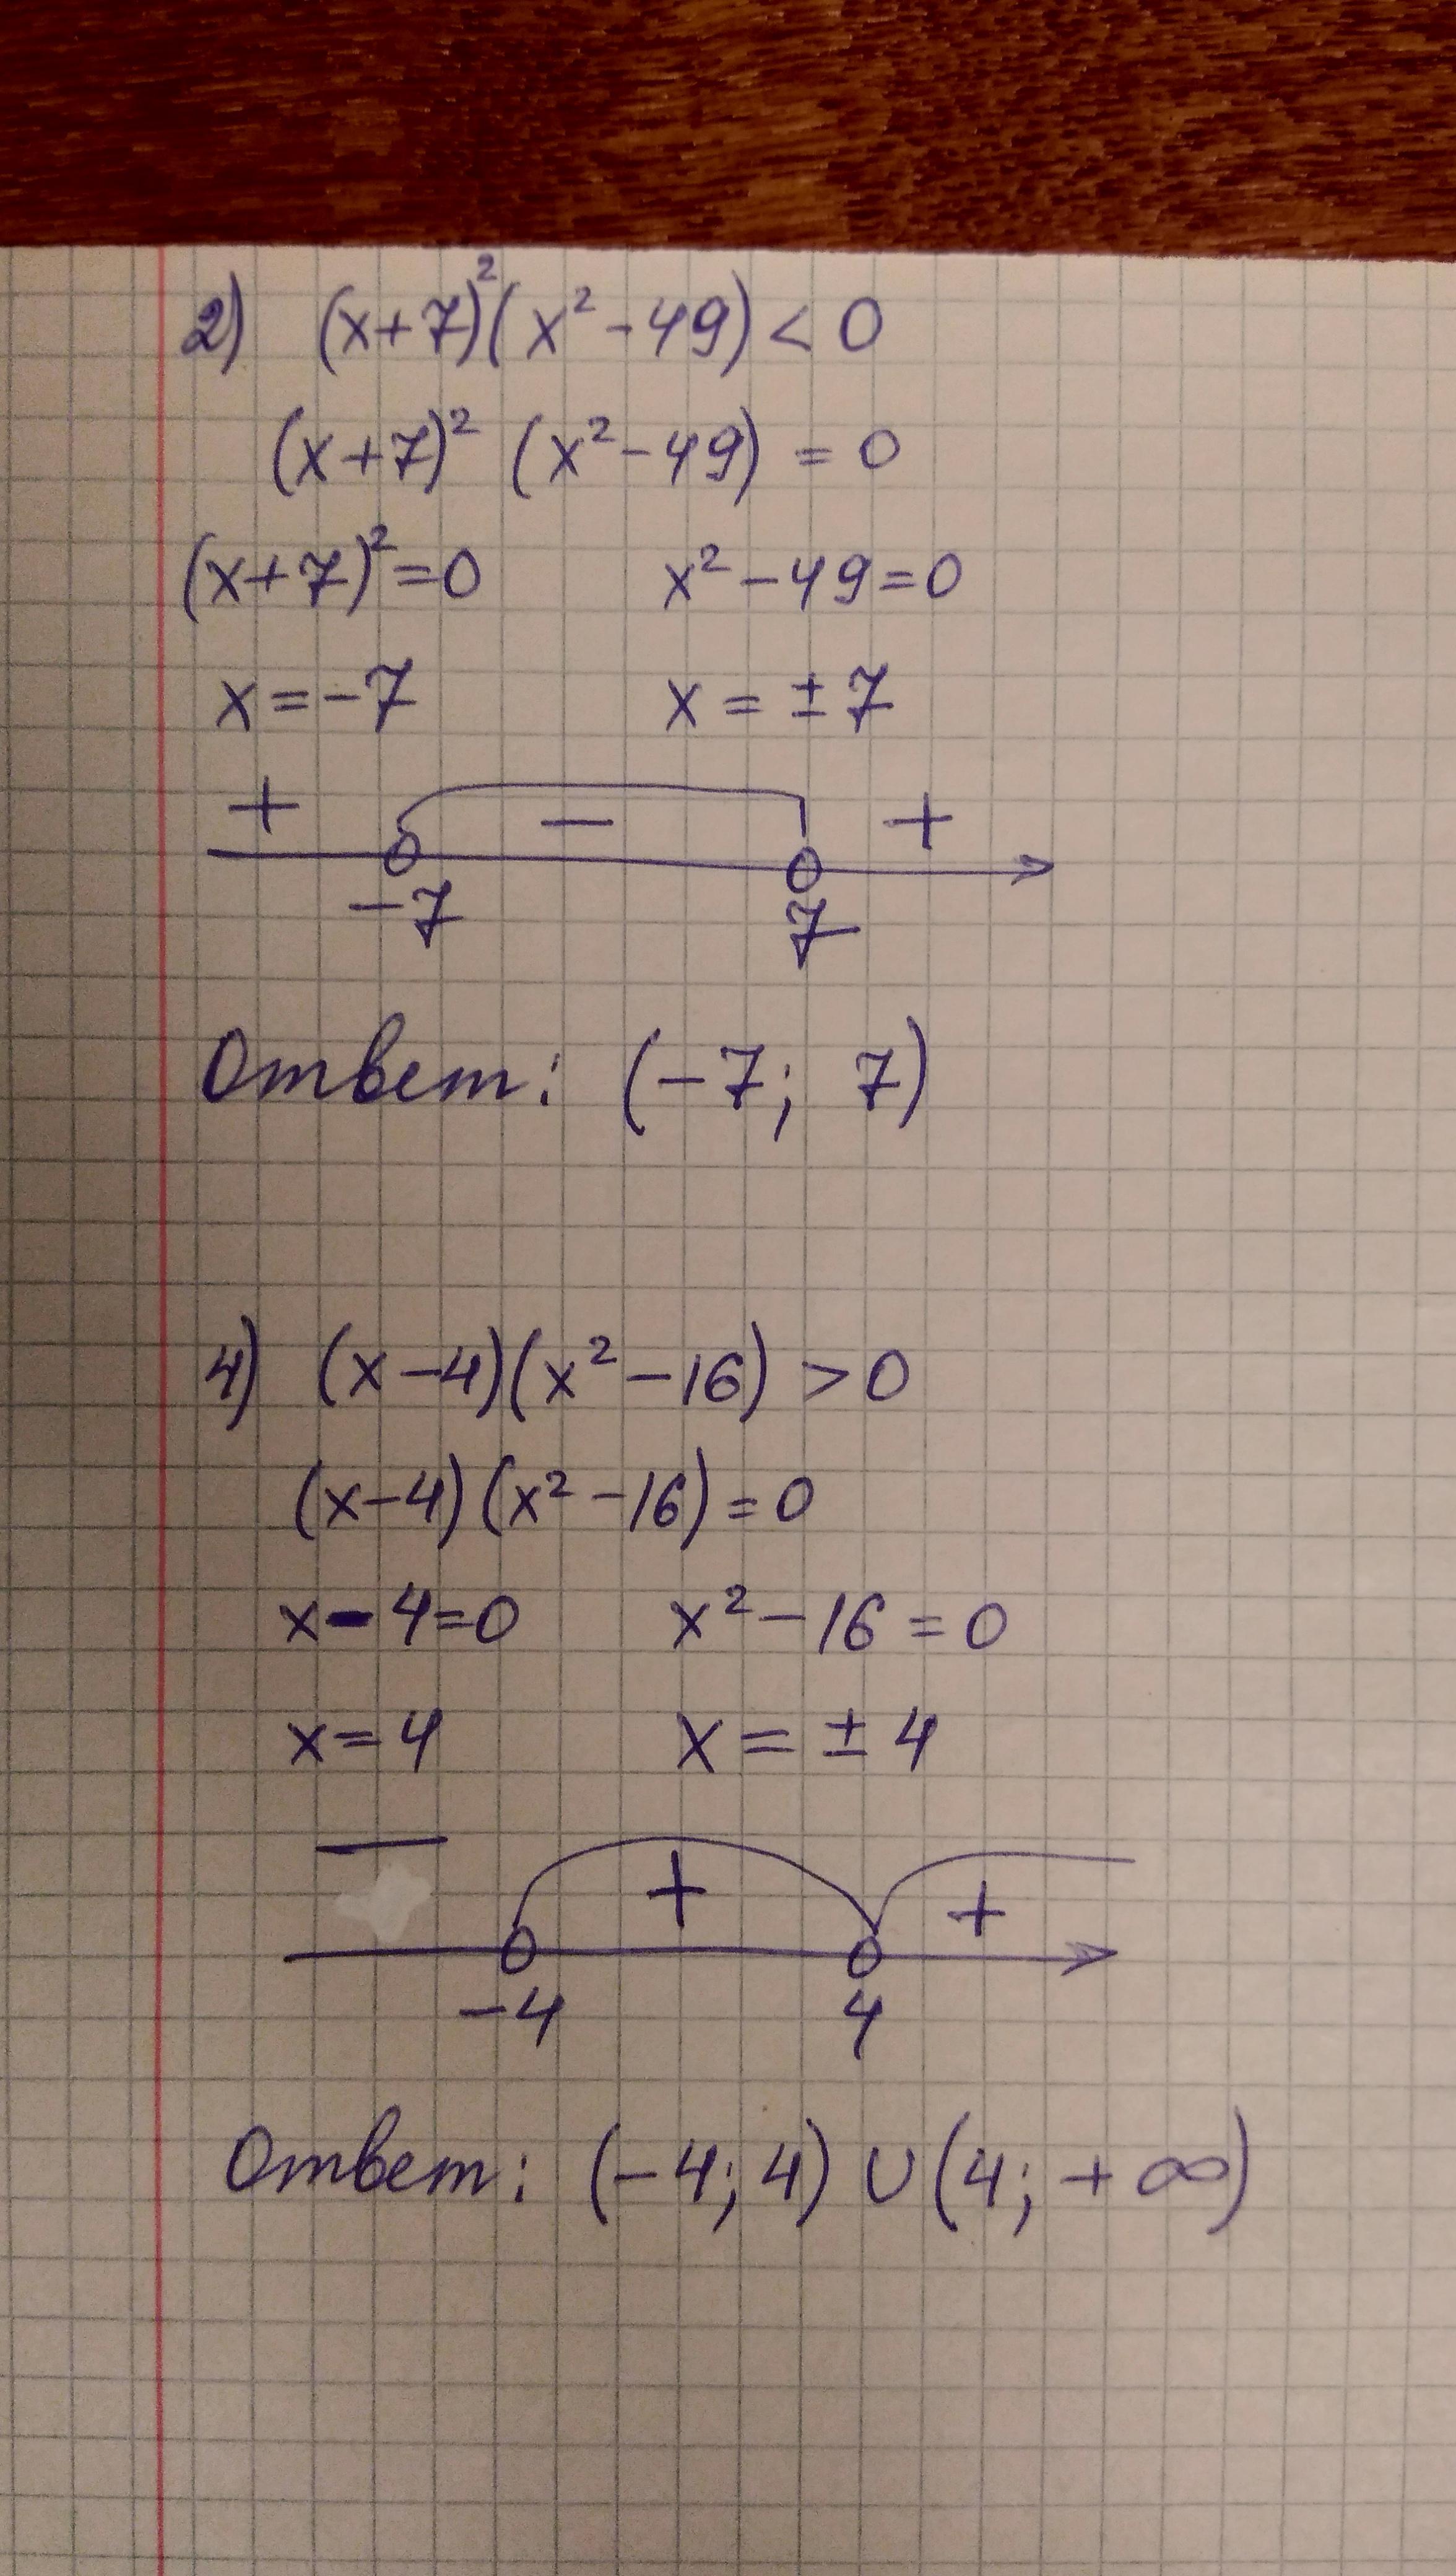 2) (x+7)²(x²-49)<0
(x+7)² (x²-49) = 0
(x+7)²=0 x²-49=0
x=-7 x=±7
+ - +
-7 7
Ответ: (-7; 7)
4) (x-4)(x²-16)>0
(x-4)(x²-16)=0
x-4=0 x²-16=0
x=4 x=±4
- + +
-4 4
Ответ: (-4;4)∪(4;+∞)